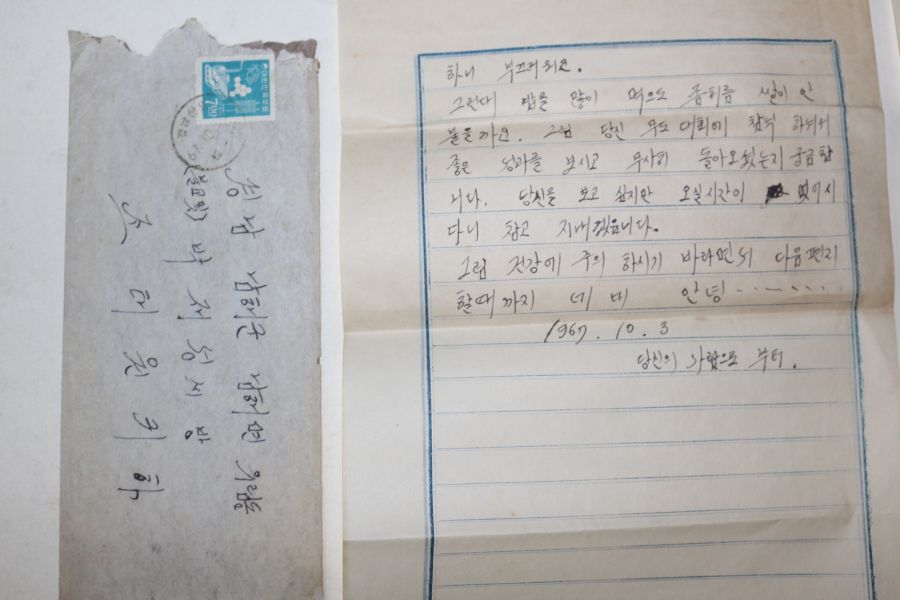 7.00
경남 남해군 남해면
박 서방
조
귀하
하니 부끄러워요.
그런데 밥을 많이 먹으도 좀처름 쌀이 안
불을까요. 그럼 당신 무도 대회에 참석 하너너
좋은 성과를 보시고 무사히 돌아오셨는지 궁금합
니다. 당신을 보고 싶지만 오실시간이 없이시
다니 참고 지내겠읍니다.
그럼 건강에 주의 하시기 바라면서 다음 편지
할때 까지 안녕.......
1967. 10. 3
당신의 사람으로 부터.